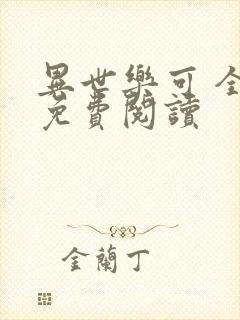 異世樂可全
免費閱讀
金蘭丁